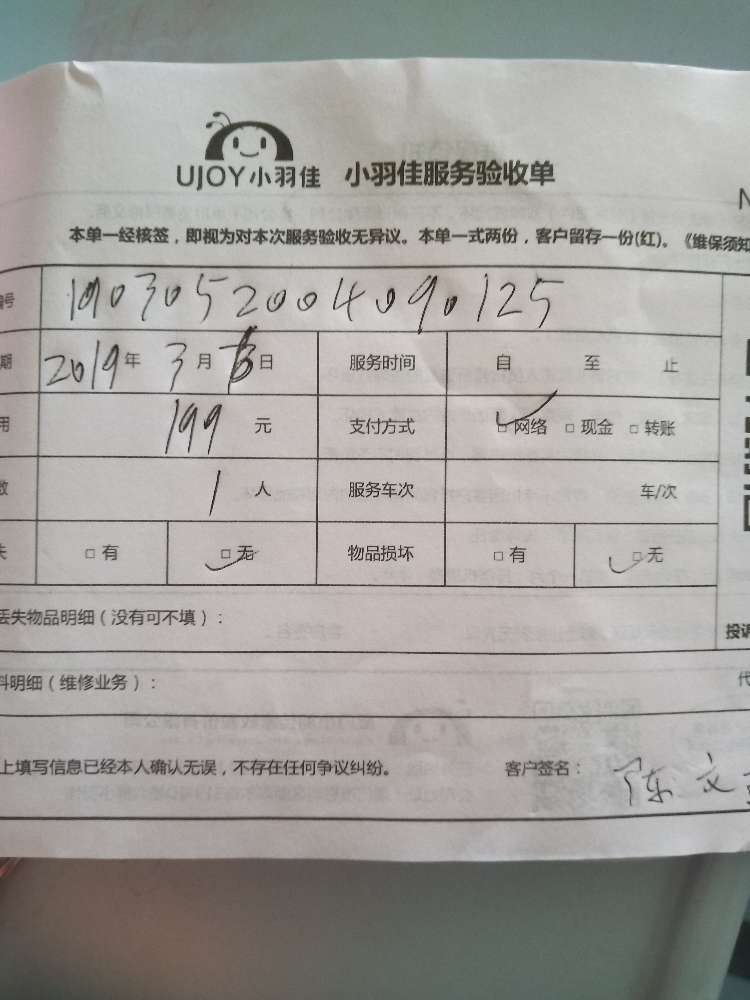 UJOY小羽佳 小羽佳服务验收单
N
本单一经核签，即视为对本次服务验收无异议。本单一式两份，客户留存一份(红)。《维保须知
编号 1903052004090125
期 2019年 3月 日 服务时间 自 至 止
用 199 元 支付方式 □网络 □现金 □转账
数 1 人 服务车次 车/次
失 □有 □无 物品损坏 □有 □无
丢失物品明细（没有可不填）： 投诉
料明细（维修业务）： 代
上填写信息已经本人确认无误，不存在任何争议纠纷。 客户签名： 陈文